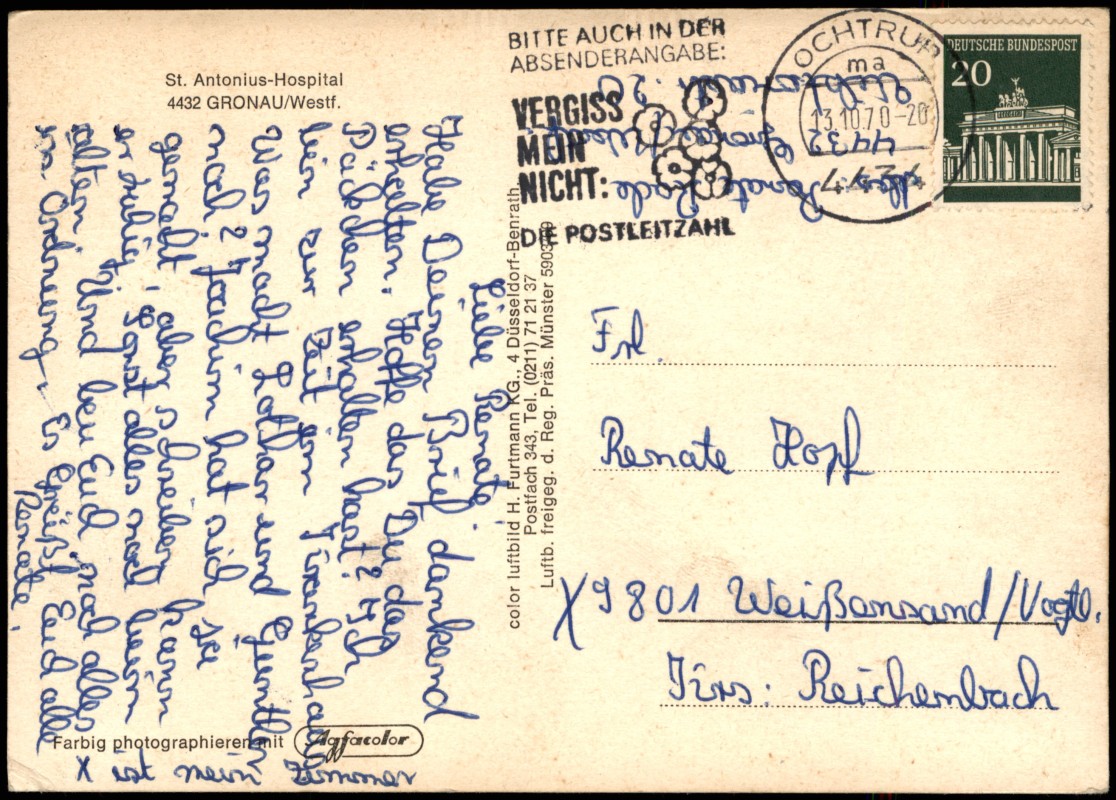 St. Antonius-Hospital
4432 GRONAU/Westf.
BITTE AUCH IN DER
ABSENDERANGABE:
VERGISS
MEIN
NICHT:
DIE POSTLEITZAHL
OCHTRUP
ma
13.10.70-20
4434
DEUTSCHE BUNDESPOST
20
Renate
4432 Gronau
Liebe Renate!
Habe Deinen Brief dankend
erhalten. Hoffe das Du das
Päckchen erhalten hast? Ich
bin zur Zeit im Krankenhaus
Was macht Lothar und Günther
noch? Joachim hat sich
gemacht, aber schreiben kann
er ruhig. Sonst alles noch beim
alten. Und bei Euch noch alles
in Ordnung. Es Grüßt Euch alle
Renate.
color luftbild H. Furtmann KG., 4 Düsseldorf-Benrath
Postfach 343, Tel. (0211) 71 21 37
Luftb. freigeg. d. Reg. Präs. Münster
Frl.
Renate Hopf
X9801 Weißensand/Vogtl.
Krs: Reichenbach
Farbig photographieren mit Agfacolor
X ist mein Zimmer